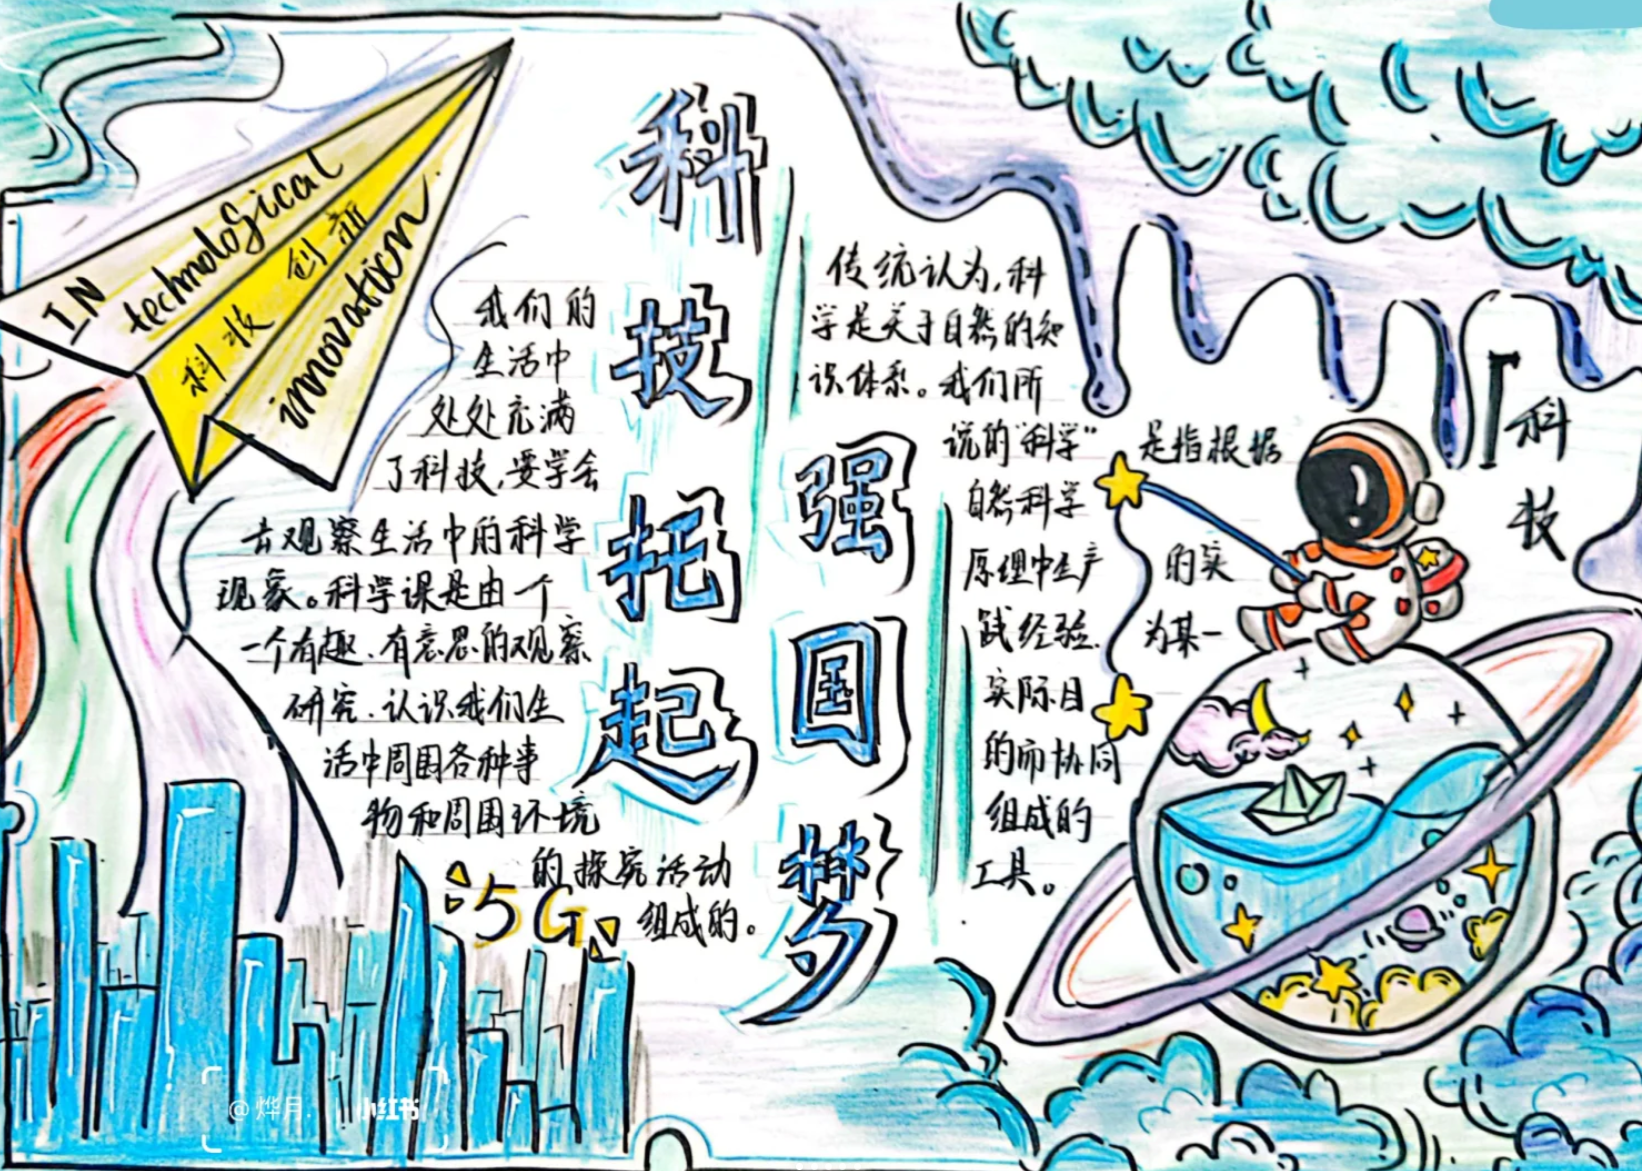 IN
technological
科技创新
innovation
科技托起
强国梦
我们的
生活中
处处充满
了科技,要学会
去观察生活中的科学
现象。科学课是由一个
一个有趣、有意思的观察
研究、认识我们生
活中周围各种事
物和周围环境
的探究活动
组成的。
5G
传统认为,科
学是关于自然的知
识体系。我们所
说的“科学”是指根据
自然科学
原理中生产的实
践经验、为某一
实际目
的而协同
组成的
工具。
科
技
@烨月.
小红书